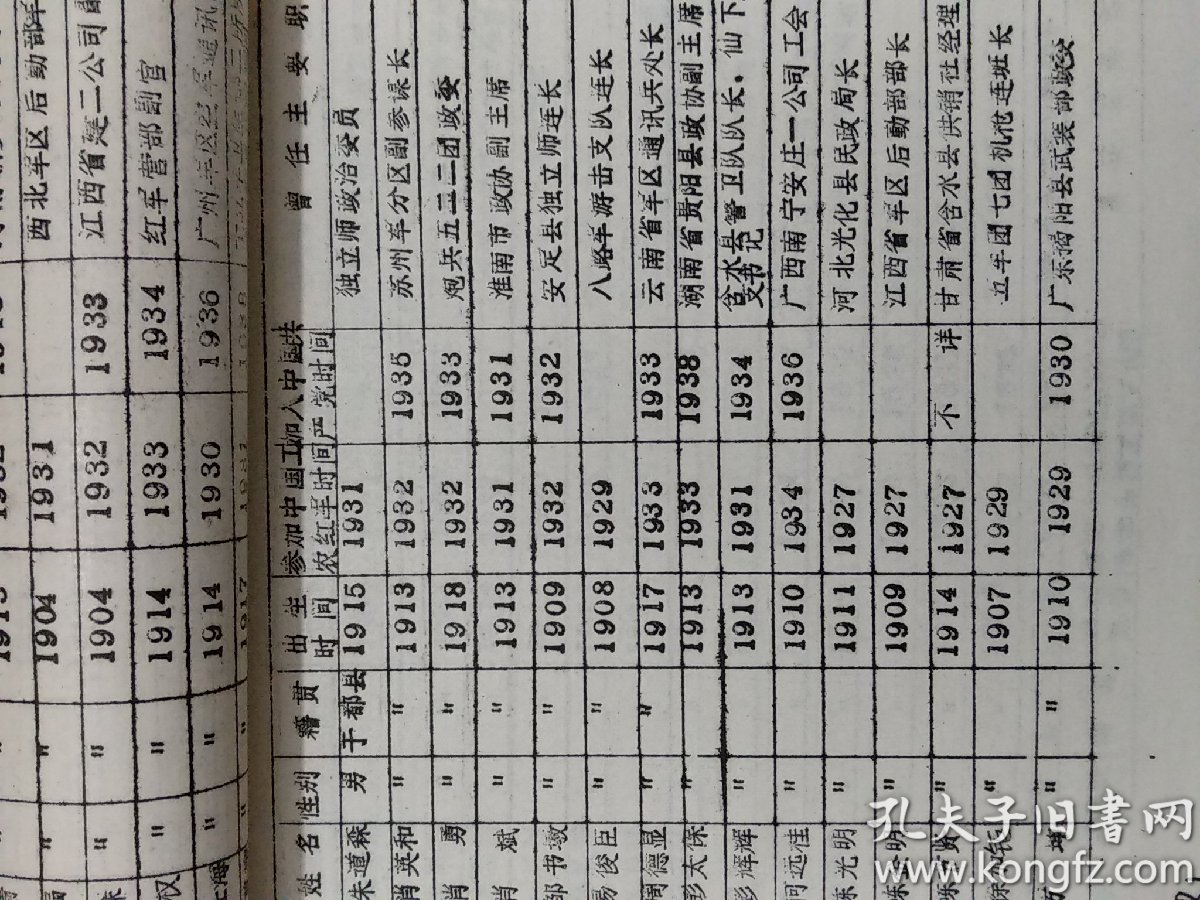 姓 名 性别 籍贯 出生时间 参加中国工农红军时间 加入中国共产党时间 曾任主要职
朱道森 男 于都县 1915 1931 独立师政治委员
肖英和 〃 〃 1913 1932 1935 苏州军分区副参谋长
肖 勇 〃 〃 1918 1932 1933 炮兵五三二团政委
肖 斌 〃 〃 1913 1931 1931 淮南市政协副主席
邹书墩 〃 〃 1909 1932 1932 安足县独立师连长
易俊臣 〃 〃 1908 1929 八路军游击支队连长
德显 〃 〃 1917 1933 1933 云南省军区通讯兵处长
彭太保 〃 1913 1933 1938 湖南省贵阳县政协副主席
彭辉辉 〃 1913 1931 1934 水县警卫队队长。仙下 支书记
何远佳 〃 1910 1934 1936 广西南宁安庄一公司工会
陈光明 〃 1911 1927 河北光化县民政局长
明 〃 1909 1927 江西省军区后勤部部长
〃 1914 1927 不详 甘肃省含水县供销社经理
〃 1907 1929 五军团七团机枪连班长
〃 〃 1910 1929 1930 广东揭阳县武装部政委
〃 〃 1904 1931 西北军区后勤部军
〃 〃 1904 1932 1933 江西省建二公司副
汉 〃 〃 1914 1933 1934 红军营部副官
〃 〃 1914 1930 1936 广州军区空军通讯
孔夫子旧书网
www.kongfz.com